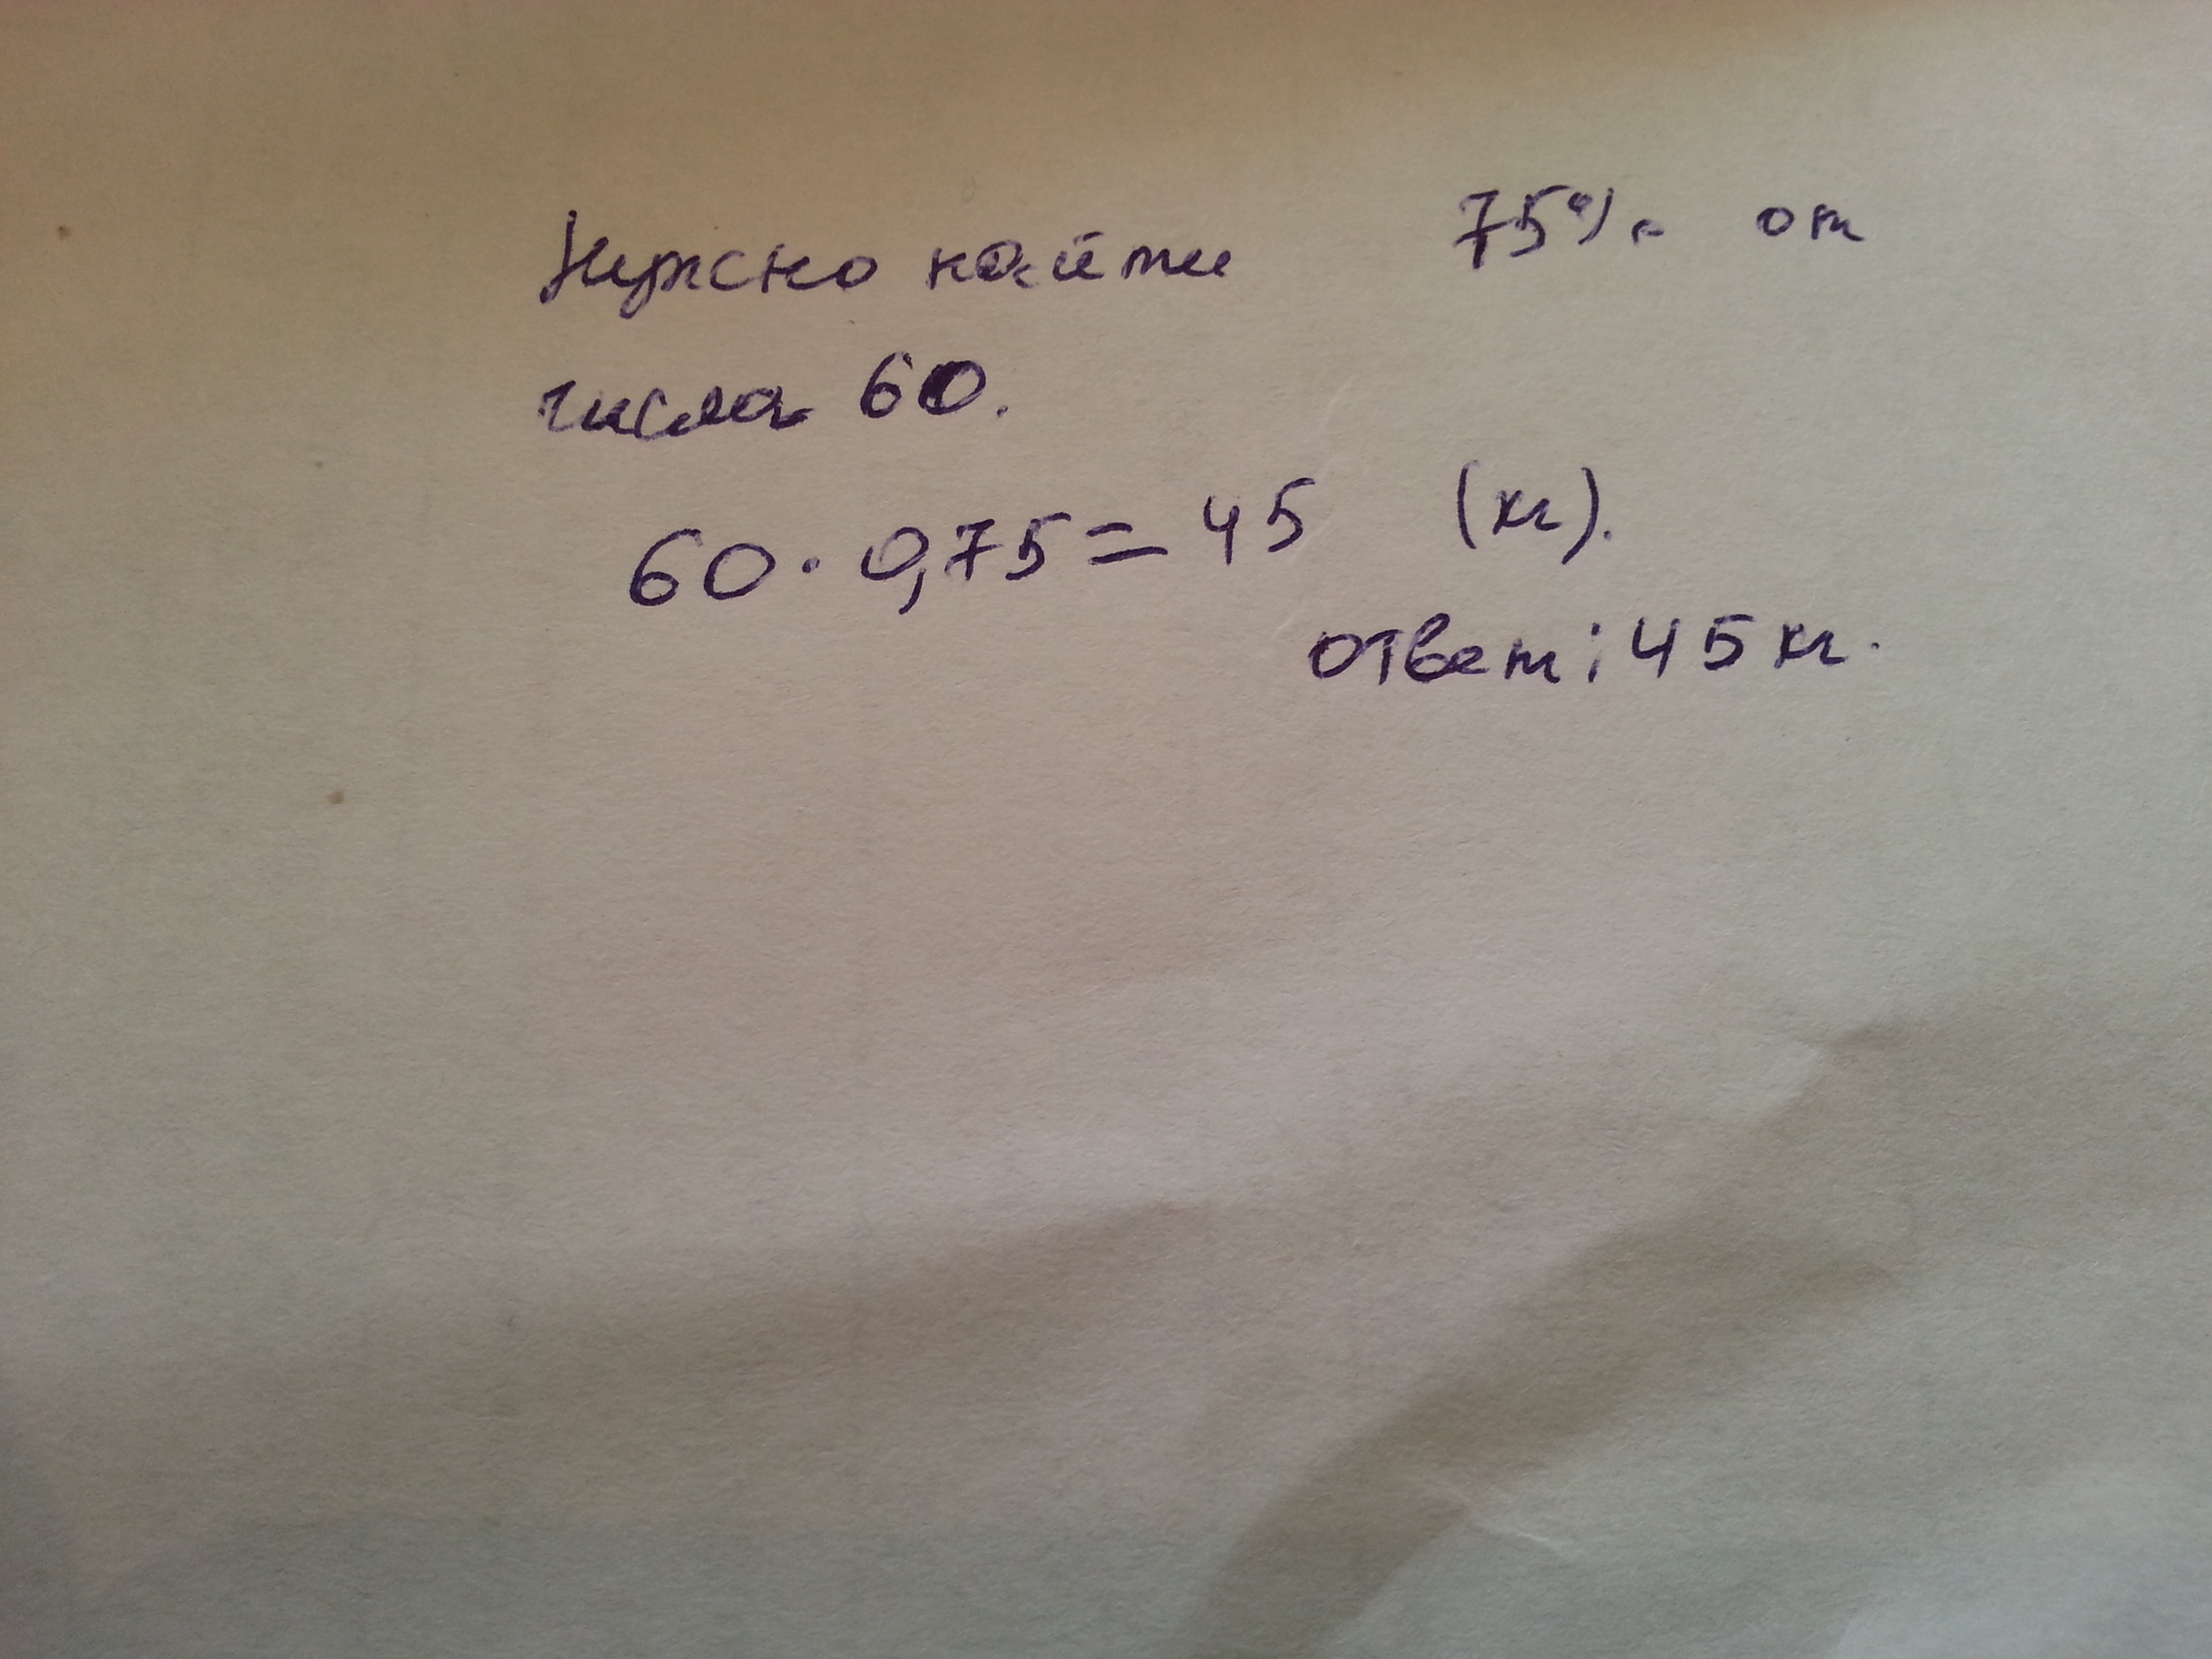 Нужно найти 75% от
числа 60.
60 · 0,75 = 45 (кг).
ответ: 45 кг.